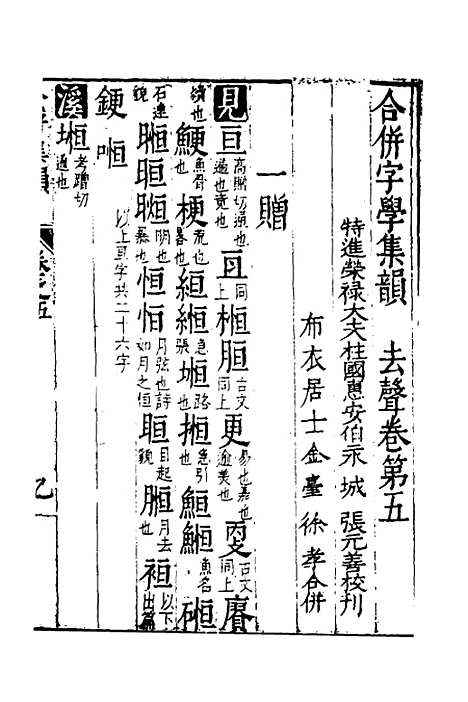 合併字學集韻 去聲卷第五
特進榮祿大夫柱國惠安伯永城 張元善校刊
布衣居士金臺 徐孝合併
一贈
見 亘 高贈切通也遍也竟也 亙 同上 栕 𦚲 古文同上 更 易也嘉也逾美也 㪅 古文同上 賡
續也 鯁 魚骨也 梗 荒也畧也 縆 緪 急張也 堩 路也 搄 急引也 䱍 䱭 魚名 硱
石連貌 暅 㫜 暅 明也暴也 恒 恆 月弦也詩如月之恒 眮 目起貌 月去也 以下出篇
鋉 𠷎 以上亘字共二十六字
溪 堩 考蹭切遍也